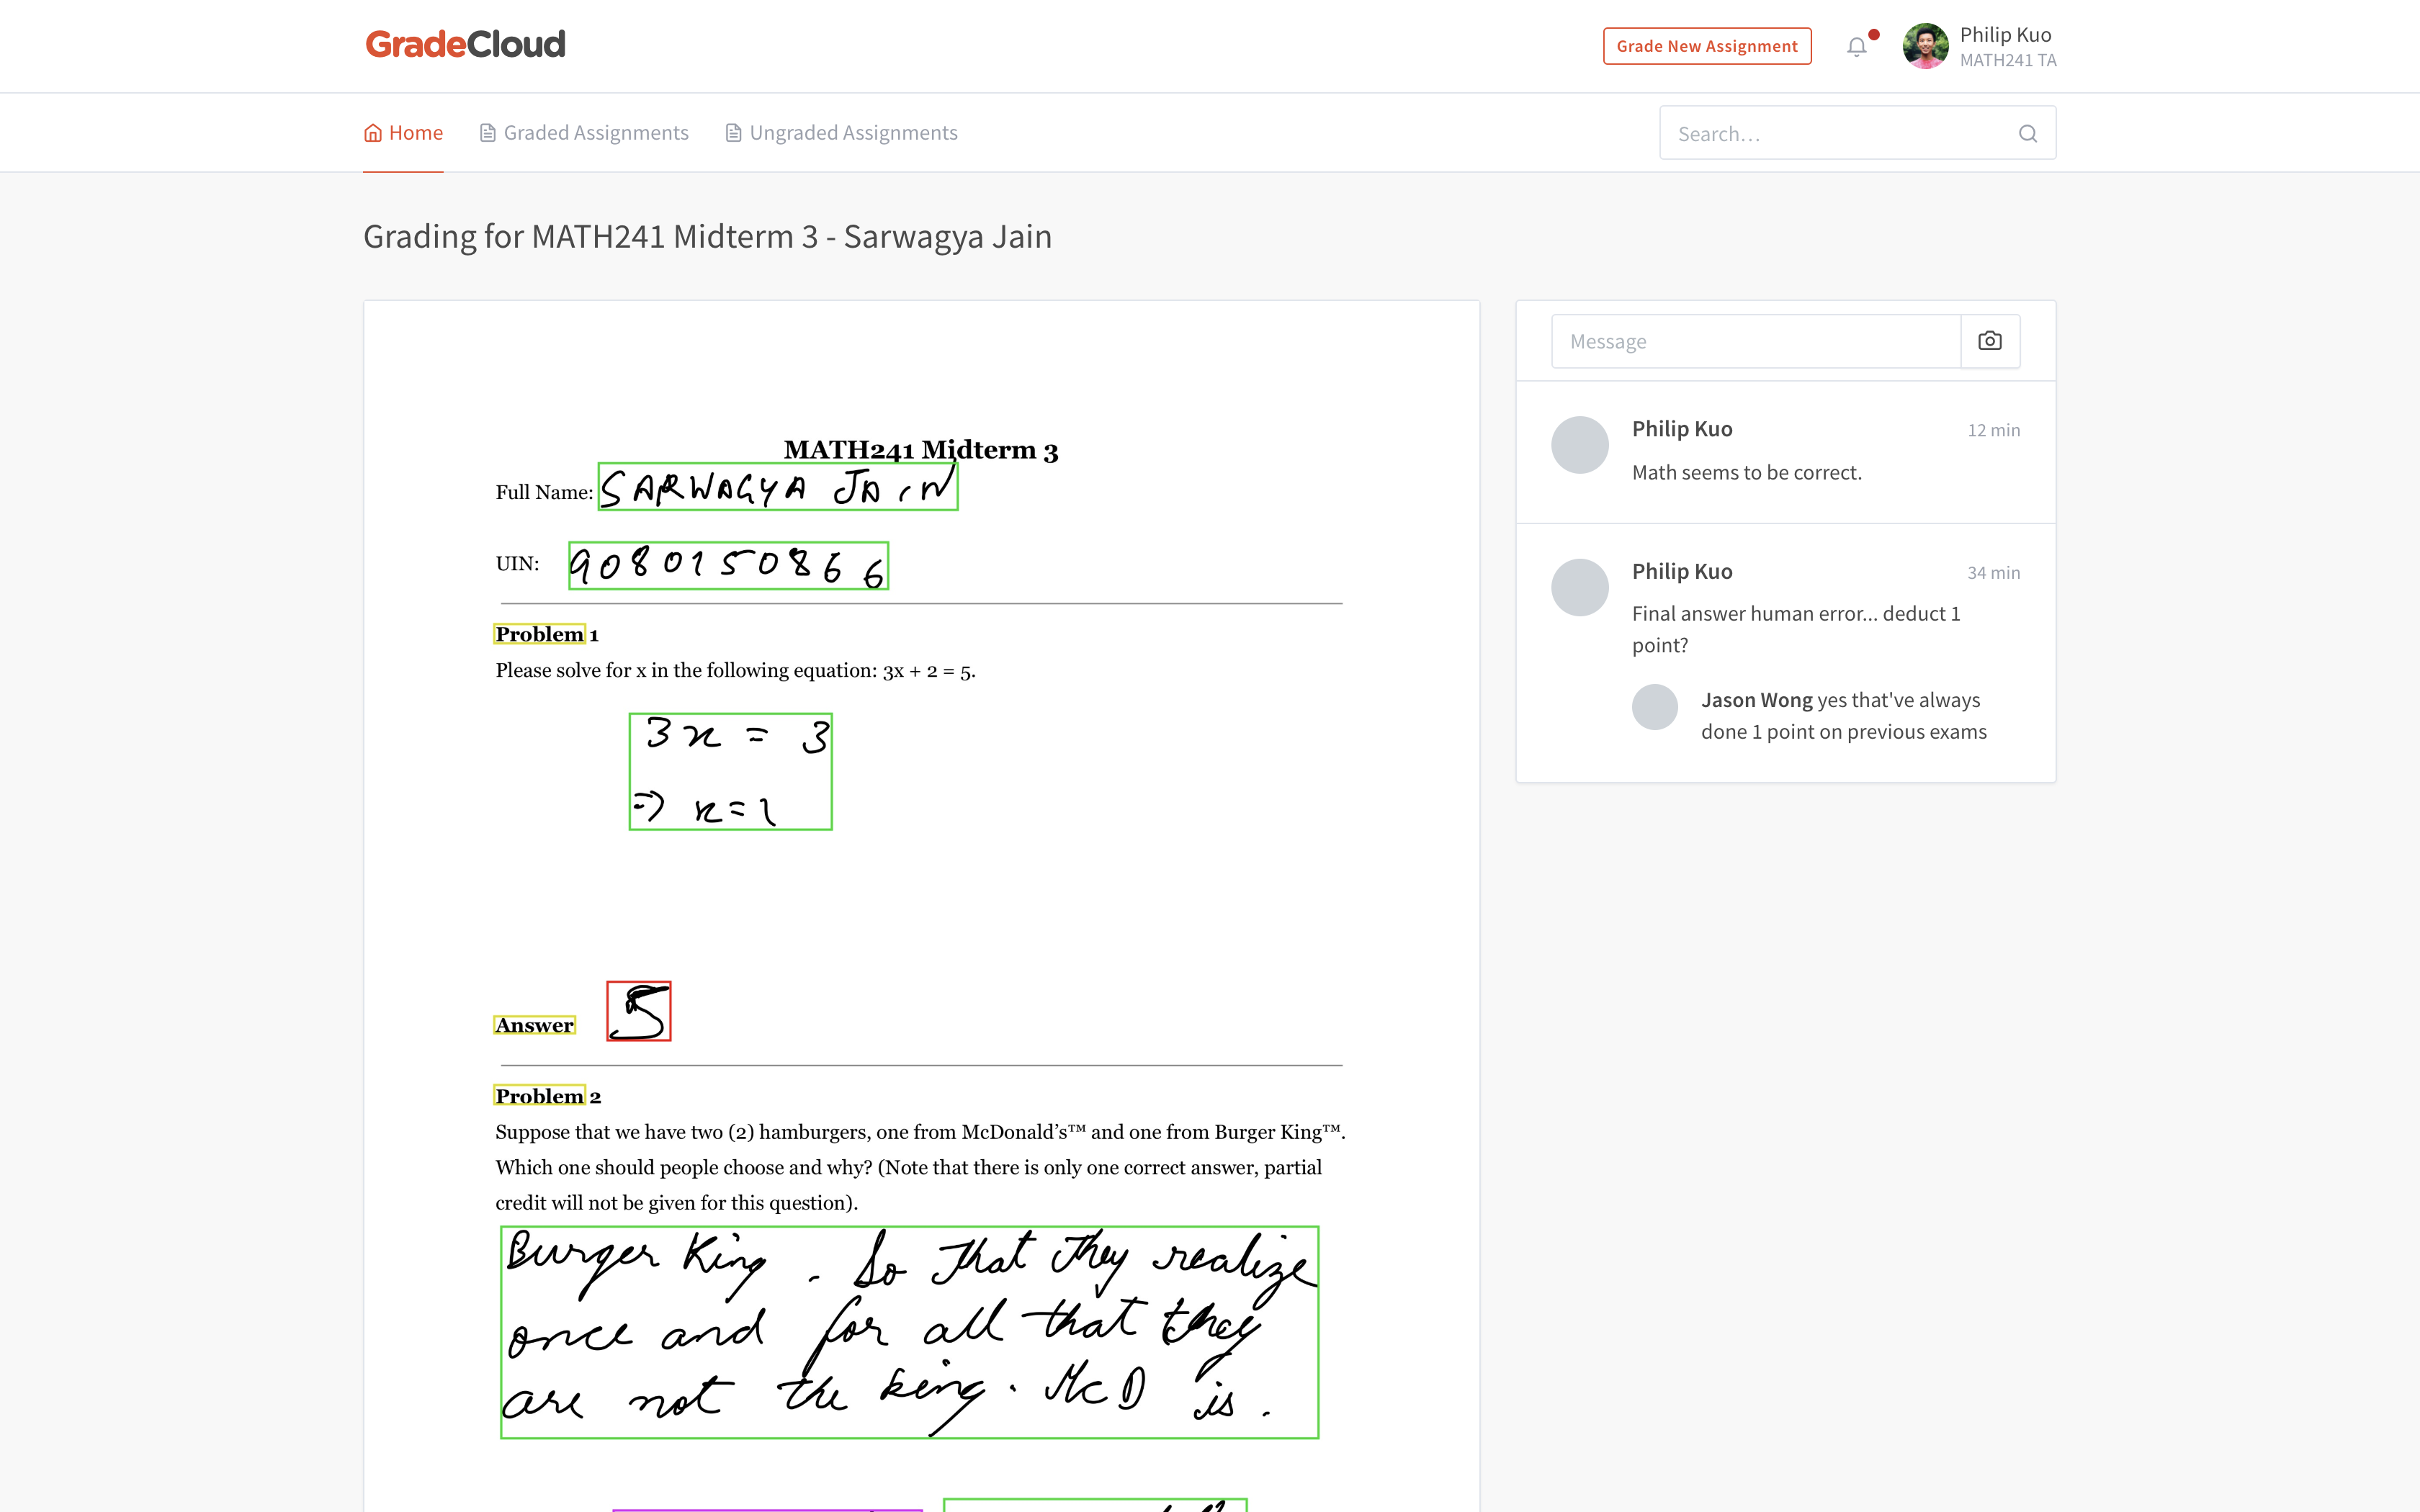 GradeCloud
Grade New Assignment
Philip Kuo
MATH241 TA
Home
Graded Assignments
Ungraded Assignments
Search…
Grading for MATH241 Midterm 3 - Sarwagya Jain
MATH241 Midterm 3
Full Name: SARWAGYA JAIN
UIN: 9080150866
Problem 1
Please solve for x in the following equation: 3x + 2 = 5.
3x = 3
⇒ x = 1
Answer 5
Problem 2
Suppose that we have two (2) hamburgers, one from McDonald’s™ and one from Burger King™.
Which one should people choose and why? (Note that there is only one correct answer, partial
credit will not be given for this question).
Burger King. So that they realize
once and for all that they
are not the king. McD is.
Message
Philip Kuo
12 min
Math seems to be correct.
Philip Kuo
34 min
Final answer human error... deduct 1
point?
Jason Wong yes that've always
done 1 point on previous exams